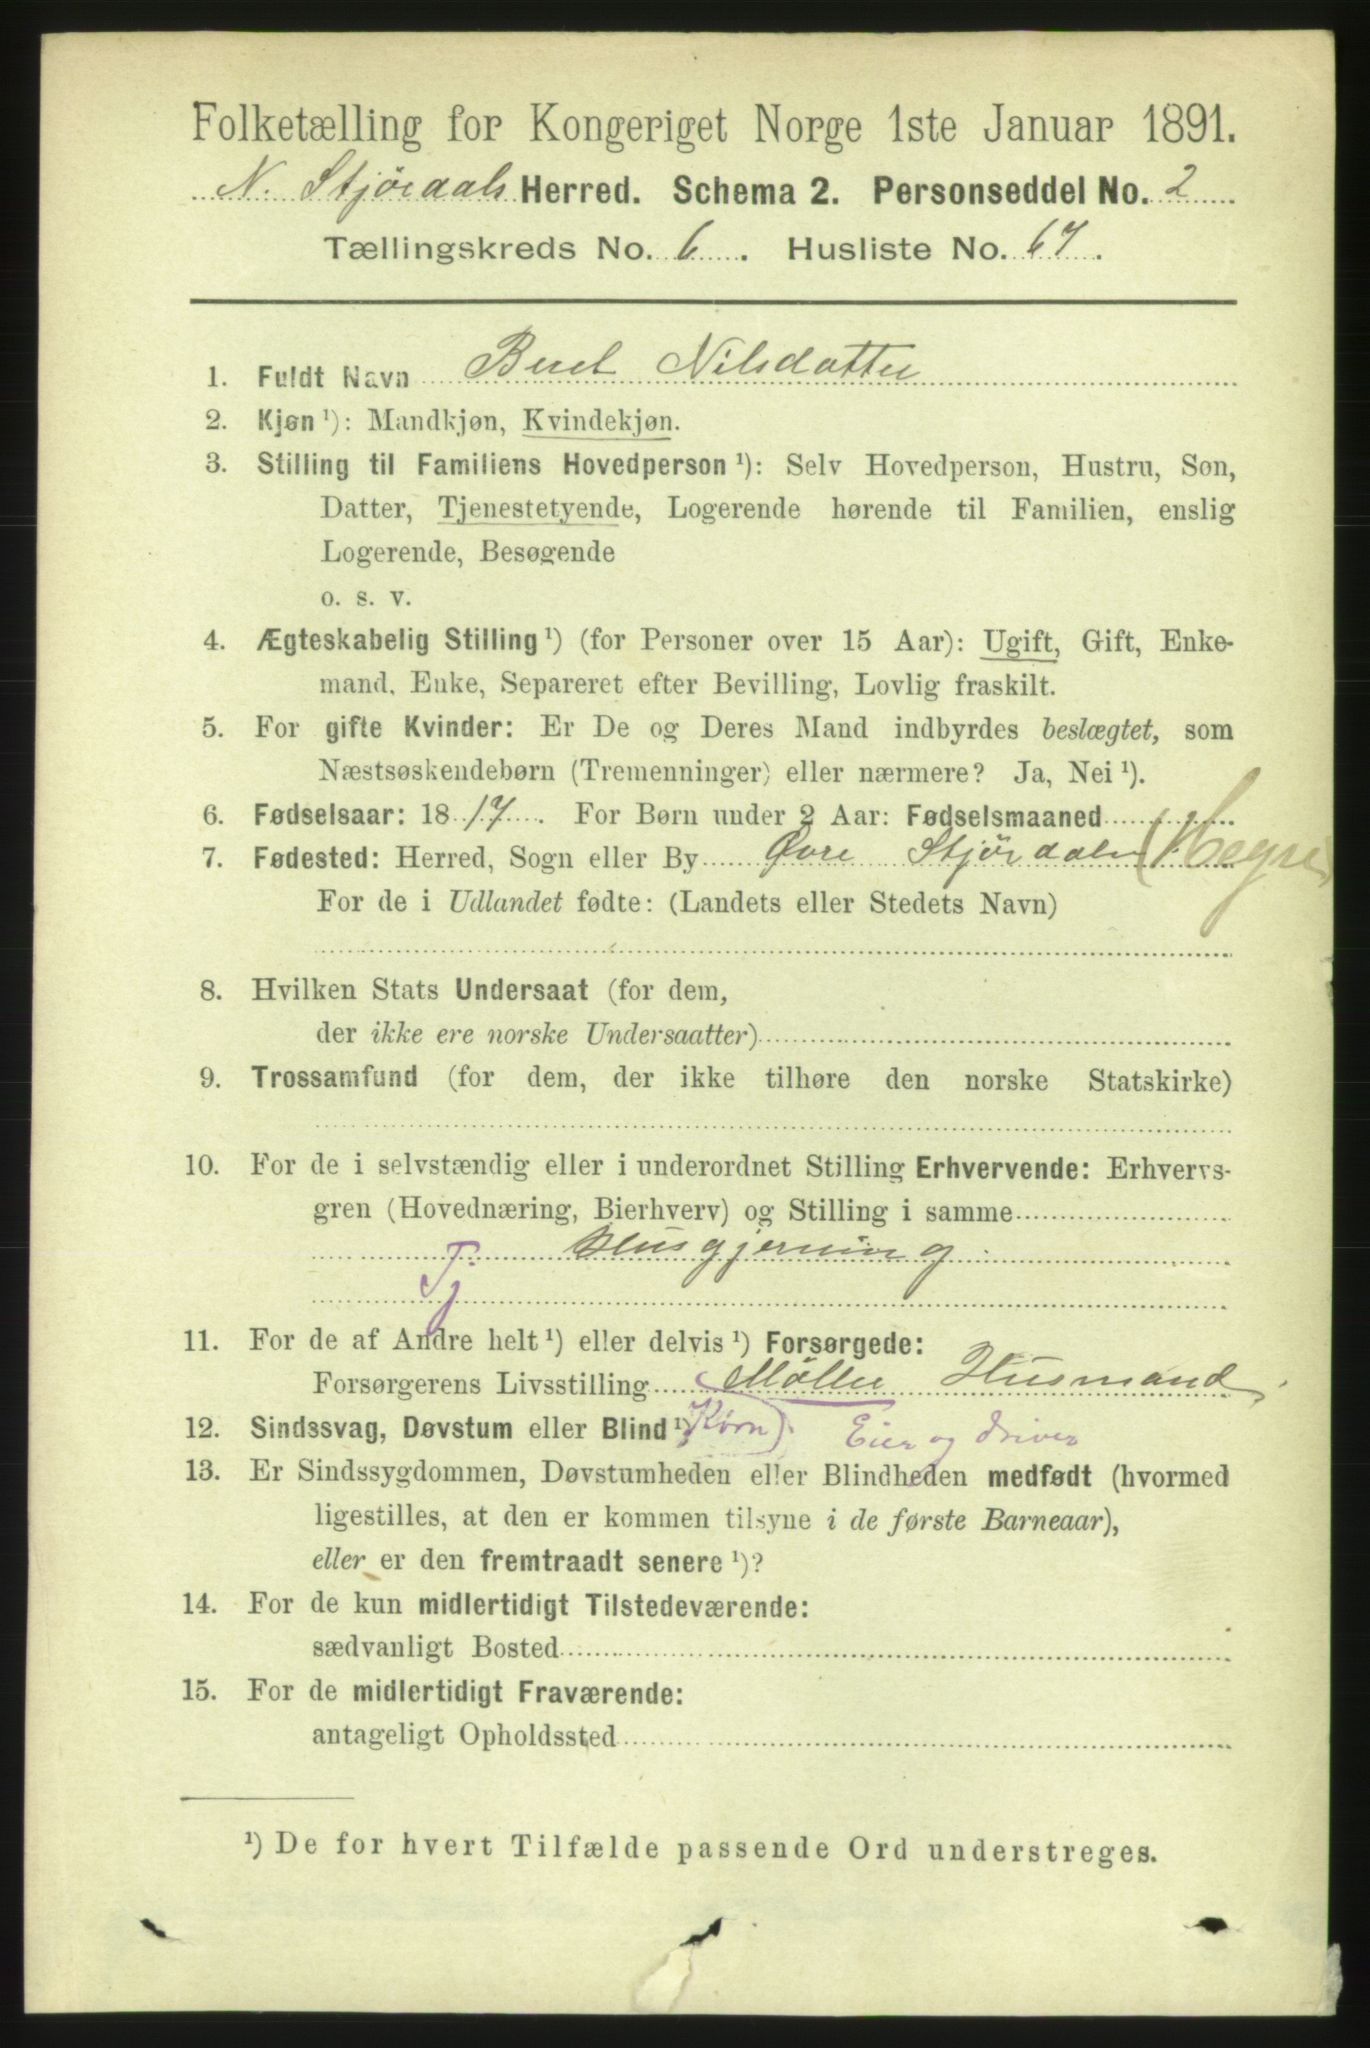 Folketælling for Kongeriget Norge 1ste Januar 1891.
N. Stjørdals Herred. Schema 2. Personseddel No. 2
Tællingskreds No. 6. Husliste No. 67.
1. Fuldt Navn Beret Nilsdatter
2. Kjøn ¹): Mandkjøn, Kvindekjøn.
3. Stilling til Familiens Hovedperson ¹): Selv Hovedperson, Hustru, Søn,
Datter, Tjenestetyende, Logerende hørende til Familien, enslig
Logerende, Besøgende
o. s. v.
4. Ægteskabelig Stilling ¹) (for Personer over 15 Aar): Ugift, Gift, Enke-
mand, Enke, Separeret efter Bevilling, Lovlig fraskilt.
5. For gifte Kvinder: Er De og Deres Mand indbyrdes beslægtet, som
Næstsøskendebørn (Tremenninger) eller nærmere? Ja, Nei ¹).
6. Fødselsaar: 1817. For Børn under 2 Aar: Fødselsmaaned
7. Fødested: Herred, Sogn eller By Øvre Stjørdalen (Hegre)
For de i Udlandet fødte: (Landets eller Stedets Navn)
8. Hvilken Stats Undersaat (for dem,
der ikke ere norske Undersaatter)
9. Trossamfund (for dem, der ikke tilhøre den norske Statskirke)
10. For de i selvstændig eller i underordnet Stilling Erhvervende: Erhvervs-
gren (Hovednæring, Bierhverv) og Stilling i samme
Husgjerning
Tj
11. For de af Andre helt ¹) eller delvis ¹) Forsørgede:
Forsørgerens Livsstilling Møller Husmand
12. Sindssvag, Døvstum eller Blind ¹) (Korn) Eier og driver
13. Er Sindssygdommen, Døvstumheden eller Blindheden medfødt (hvormed
ligestilles, at den er kommen tilsyne i de første Barneaar),
eller er den fremtraadt senere ¹)?
14. For de kun midlertidigt Tilstedeværende:
sædvanligt Bosted
15. For de midlertidigt Fraværende:
antageligt Opholdssted
¹) De for hvert Tilfælde passende Ord understreges.